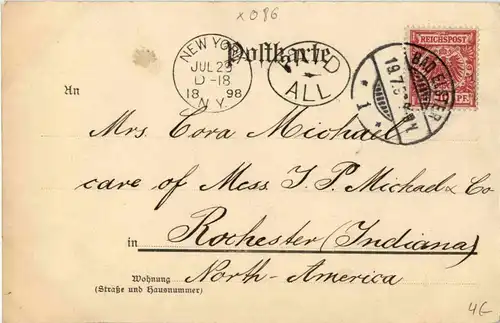 x086
NEW YORK
JUL 29
D-18
18 98
N.Y.
Postkarte
PAID
ALL
BAD ELSTER
19.7.
* 1 *
REICHSPOST
PF.
An
Mrs. Cora Michael
care of Mess J. P. Michael & Co
in Rochester (Indiana)
North-America
Wohnung
(Straße und Hausnummer)
4€